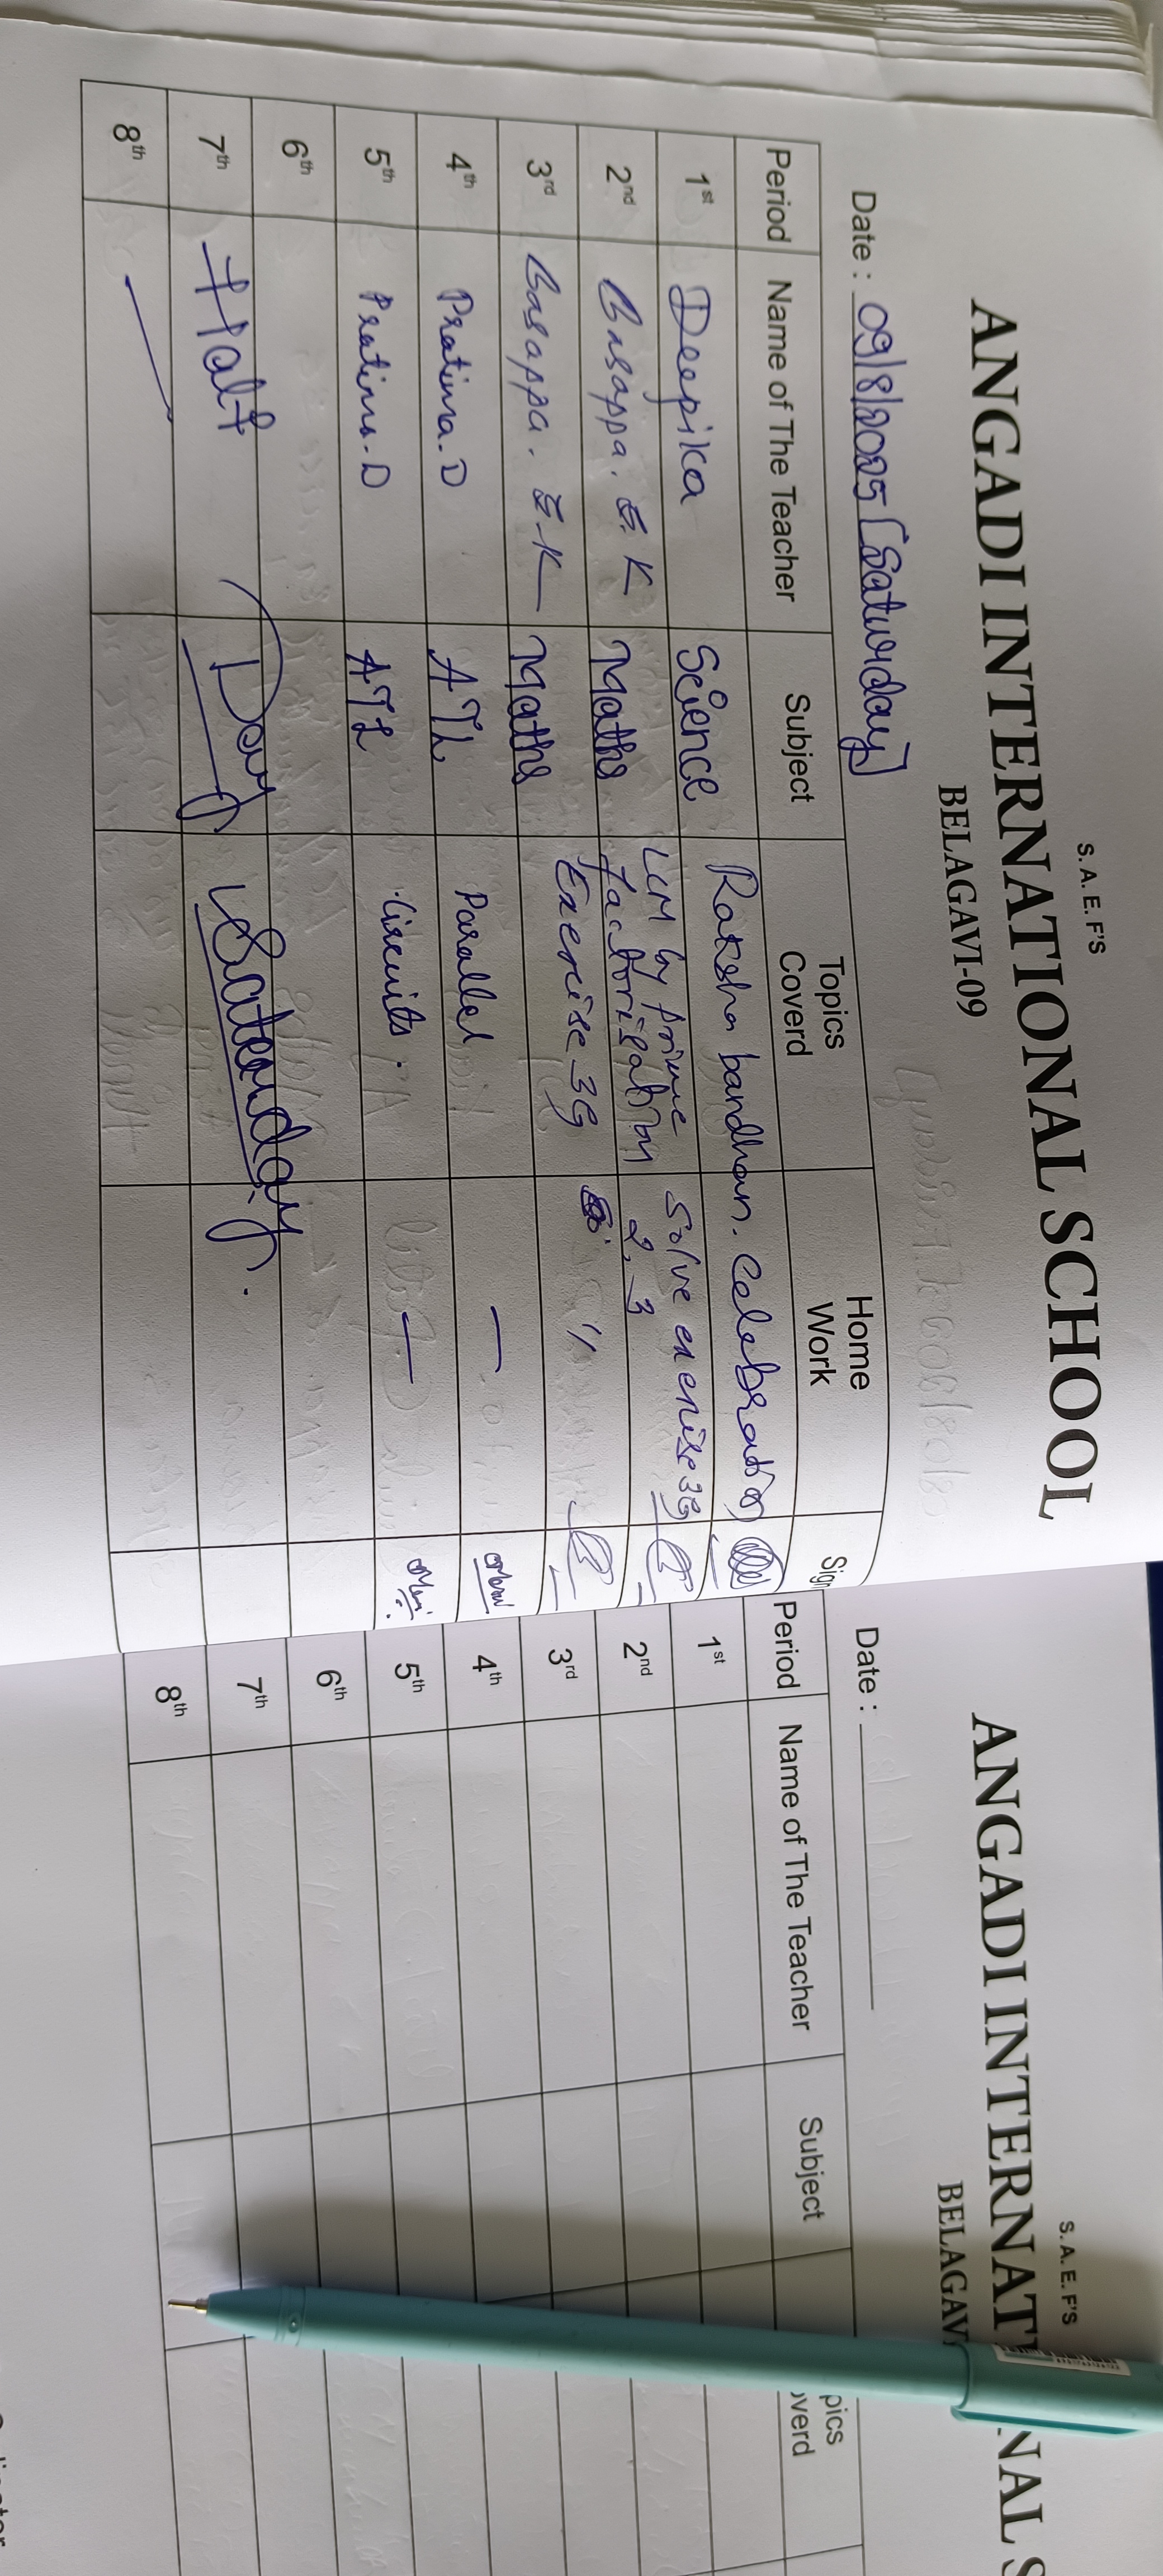 S. A. E. F'S
ANGADI INTERNATIONAL SCHOOL
BELAGAVI-09
Date : 09/8/2025 [Saturday]
Period Name of The Teacher Subject Topics Coverd Home Work Sign
1st Deepika Science Raksha bandhan. Celebration
2nd Basappa. K Maths LCM by prime factorisation Solve exercise 3G 2, 3
3rd Basappa. K Maths Exercise 3G
4th Pratima.D ATL Parallel —
5th Pratima.D ATL Circuits. —
6th
7th Half Day Saturday.
8th
S. A. E. F'S
ANGADI INTERNAT NAL S
BELAGAV
Date :
Period Name of The Teacher Subject pics verd
1st
2nd
3rd
4th
5th
6th
7th
8th